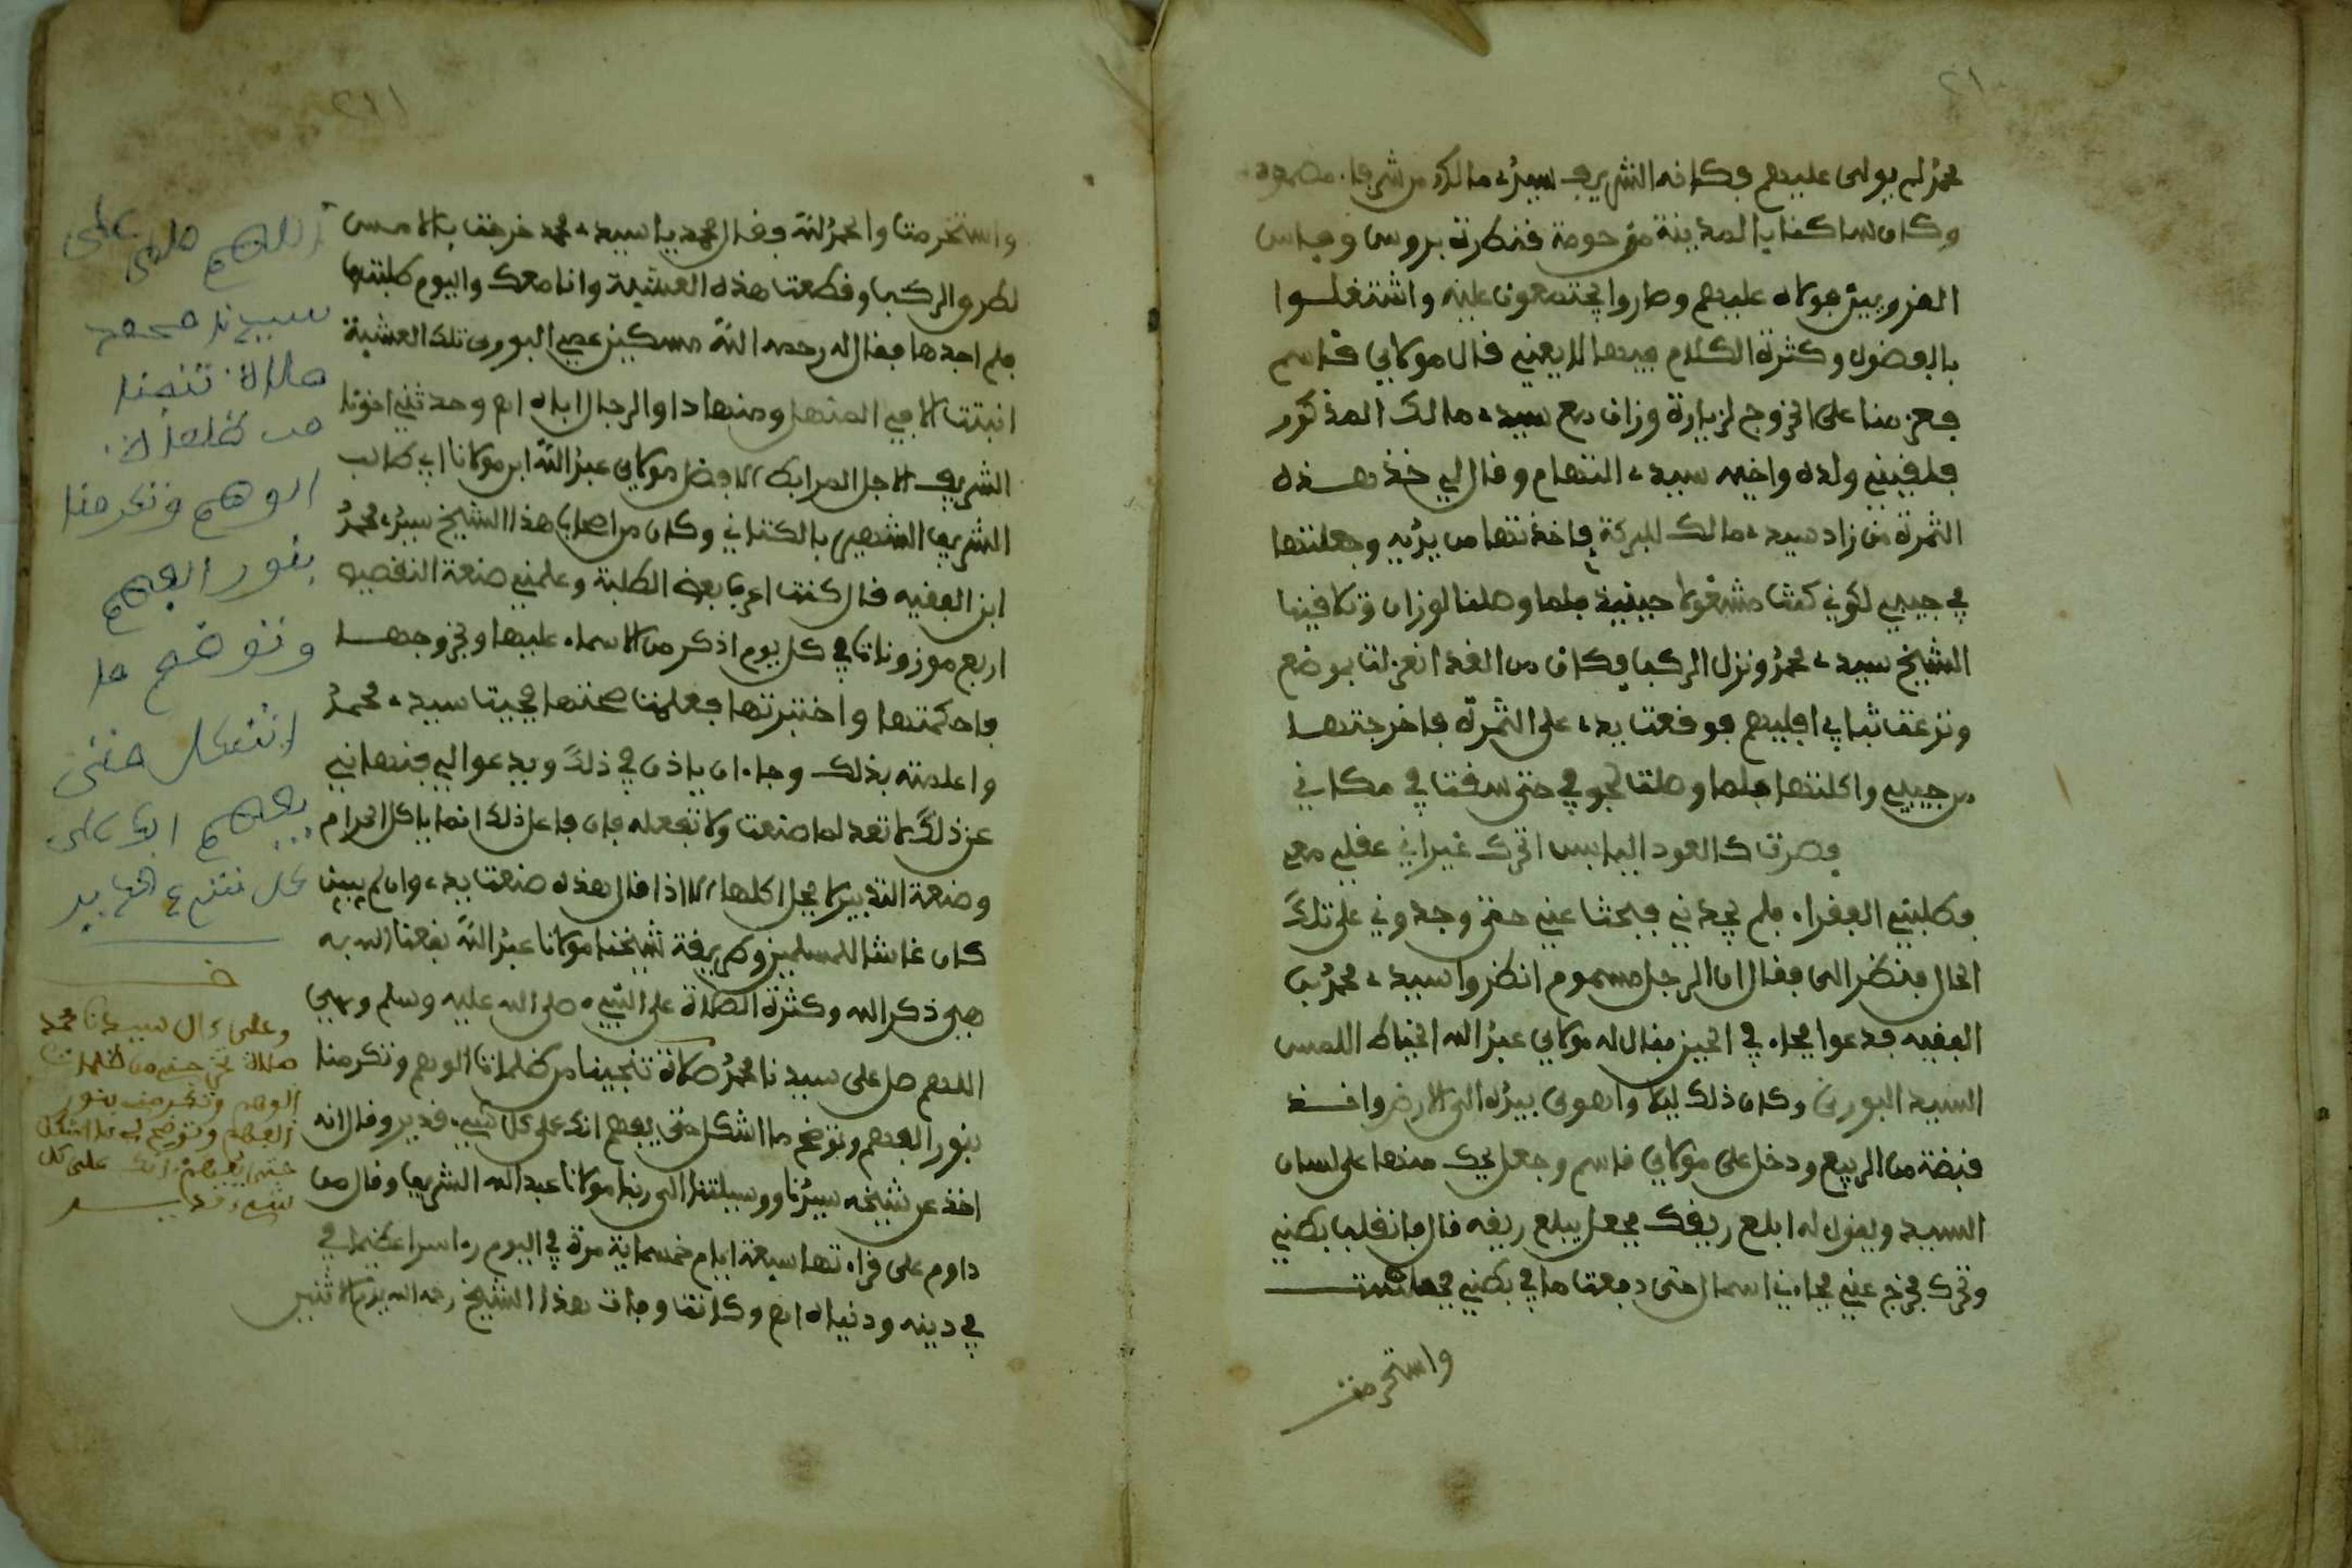 ٢١٠
محمد لم يولى عليهم فكانه الشريف سيدي مالك من شرفا مصمودة
وكان ساكنا بالمدينة من حومة فنطرة بروس وفاس
الفرويين مولاه عليهم وصاروا يجتمعون عليه واشتغلوا
بالفضول وكثرة الكلام فيما لا يعني قال مولاي قاسم
فعزمنا على الخروج لزيارة وزان مع سيدي مالك المذكور
فلقيني ولده واخيه سيدي التهام وقال لي خذ هذه
الثمرة من زاد سيدي مالك للبركة فاخذتها من يديه وجعلتها
في جيبي لكوني كنت مشغولا حينيذ فلما وصلنا لوزان وتلافينا
الشيخ سيدي محمد ونزل الركب فكان من الغد انعزلت بموضع
ونزعت ثيابي افليهم فوقعت يدي على الثمرة فاخرجتها
من جيبي واكلتها فلما وصلت لجوفي حتى سقت في مكاني
فصرت كالعود اليابس اتحرك غير اني عقلي معي
فطلبني الفقراء فلم يجدني فبحثا عني حتى وجدوني على تلك
الحال فنظر الى فقال ان الرجل مسموم انظروا سيدي محمد بن
الفقيه فدعوا فجاء في الحين فقال له مولاي عبد الله الخياط المس
السيد البوري وكان ذلك ليلا واهوى بيده الى الارض واخذ
قبضة من الربيع ودخل على مولاي قاسم وجعل يحك منها على لسان
السيد ويقول له ابلع ريقك فجعل يبلع ريقه قال فانقلب بطني
وتحرك فخرج عني فجاءني اسهال حتى دفعت ما في بطني فعشت
واسترحت
٢١١
واسترحت والحمد لله فقال محمد يا سيدي محمد خرجت بالامس
لطرف الركب وقطعت هذه العشية وانا معك واليوم طلبتها
فلم اجدها فقال له رحمه الله مسكين عمي البوري تلك العشبة
انبتت لا في المنهل ومنها داوا الرجال اباه اه وحدثني اخونا
الشريف الاجل المرابط الافضل مولاي عبد الله ابن مولانا ابي طالب
الشريف الشهير بالكتاني وكان من اصحاب هذا الشيخ سيدي محمد
ابن الفقيه قال كنت اعرف بعض الطلبة وعلمني صنعة التفصيص
اربع موزونات في كل يوم اذكر من الاسماء عليها وبخروجها
فاحكمتها واختبرتها فعلمت صحتها فجيت سيدي محمد
واعلمته بذلك وجاء ان ياذن في ذلك ويدعوا لي فنهاني
عن ذلك لا تعد لما صنعت ولا تفعله فان فاعل ذلك انما ياكل الحرام
وصنعة التدبير لا يحل اكلها الا اذا قال هذه صنعت يدي وان لم يبين
كان غاشا للمسلمين وطريقة شيخنا مولانا عبد الله نفعنا الله به
هي ذكر الله وكثرة الصلاة على النبيء صلى الله عليه وسلم وهي
اللهم صل على سيدنا محمد صلاة تنجينا من ظلمات الوهم وتكرمنا
بنور الفهم وتوضح ما اشكل حتى يفهم انك على كل شيء قدير وقال انه
اخذ عن شيخه سيدنا ووسيلتنا الى ربنا مولانا عبد الله الشريف وقال من
داوم على قراءتها سبعة ايام خمسماية مرة في اليوم رءا سرا عظيما في
في دينه ودنياه اه وكانت وفات هذا الشيخ رحمه الله يوم الاثنين
اللهم صلي على
سيدنا محمد
صلاة تنجنا
من ظلمات
الوهم وتكرمنا
بنور الفهم
وتوضح ما
اشكل حتى
يفهم انك على
كل شيء قدير
وعلى ءال سيدنا محمد
صلاة تخرجني من ظلمات
الوهم وتكرمني بنور
الفهم وتوضح لي ما اشكل
حتى يفهم انك على كل
شيء قدير